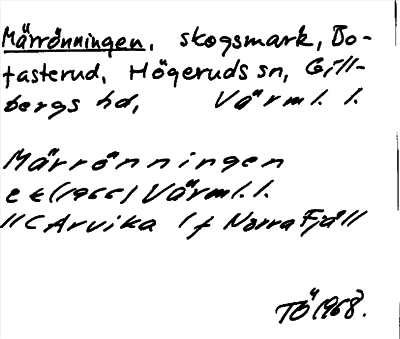 Märrönningen, skogsmark, Bo-
tasterud, Högeruds sn, Gill-
bergs hd, Värml. l.
Märrönningen
ek (1966) Värml. l.
11C Arvika 1f Norra Fjäll
TÖ 1968.